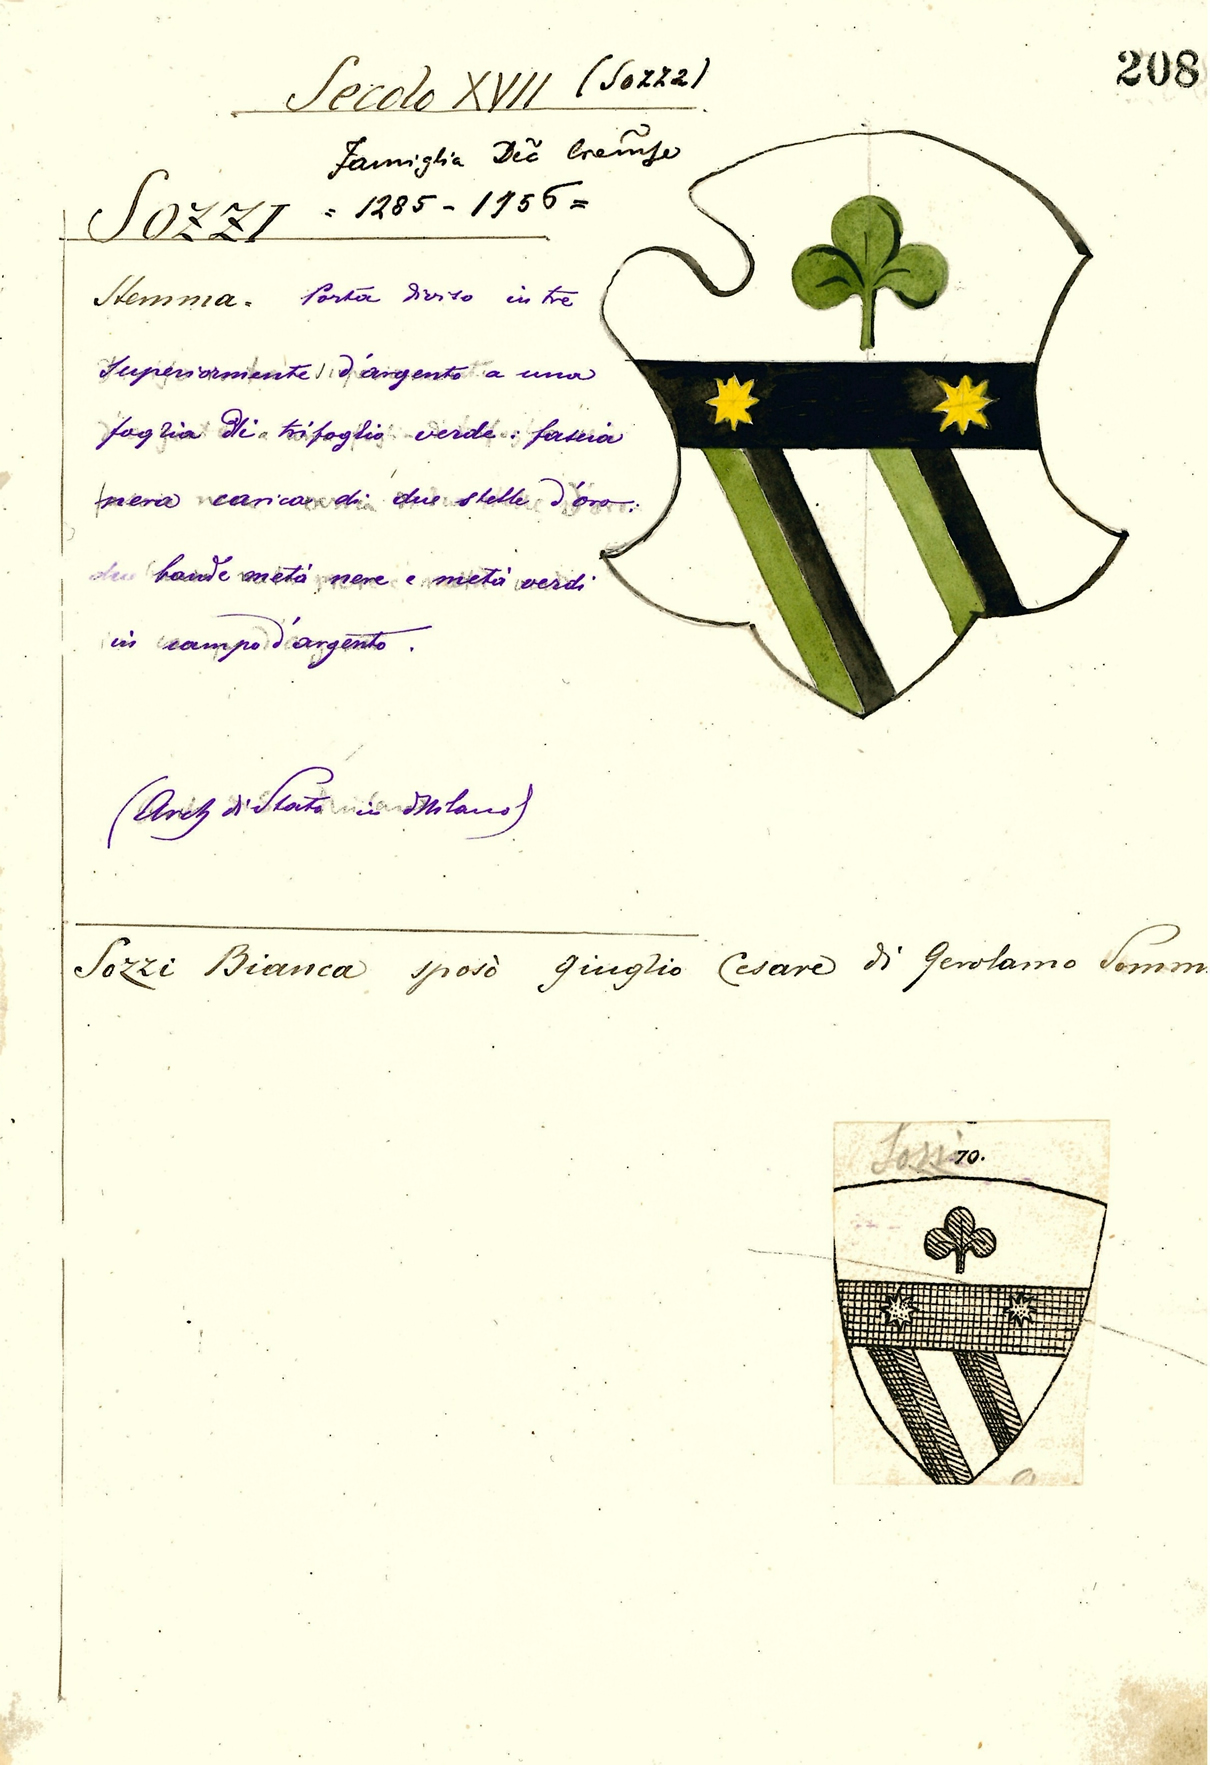 208
Secolo XVII (Sozza)
Famiglia Dec̃ Crem̃se
SOZZI = 1285 - 1756 =
Stemma. Porta diviso in tre
superiormente d'argento a una
foglia di trifoglio verde: fascia
nera carica di due stelle d'oro:
due bande metà nere e metà verdi
in campo d'argento.
(Arch di Stato in Milano)
Sozzi Bianca sposò Giuglio Cesare di Gerolamo Somm
Sozzi 70.